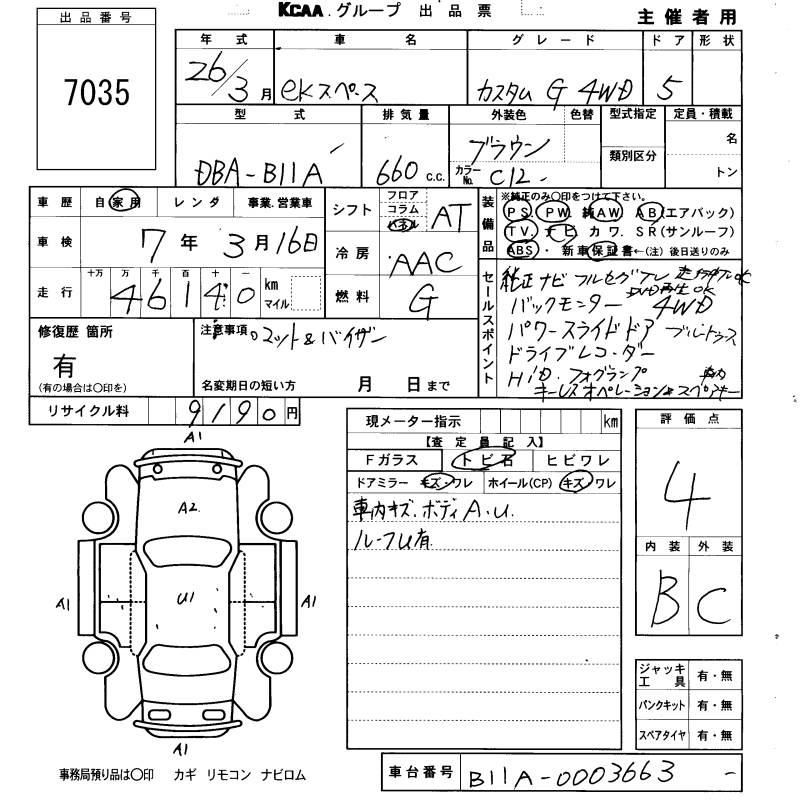 KCAA グループ 出品票
主催者用
出品番号
7035
年式 車名 グレード ドア 形状
26/3月 eKスペース カスタム G 4WD 5
型式 排気量 外装色 色替 型式指定 定員・積載
DBA-B11A 660 c.c. ブラウン 名
カラーNo. C12 類別区分 トン
車歴 自家用 レンタ 事業.営業車
車検 7年 3月16日
走行 十万 万 千 百 十 一
46140 km マイル
シフト フロア コラム パネル AT
冷房 AAC
燃料 G
装備品 ※純正のみ〇印をつけて下さい。
PS. PW. 純AW AB(エアバック)
TV. ナビ カワ. SR(サンルーフ)
ABS・新車保証書←(注)後日送りのみ
セールスポイント
純正ナビ フルセグTV 走行中OK
DVD再生OK
バックモニター 4WD
パワースライドドア
ドライブレコーダー
HiD. フォグランプ
キーレスオペレーション スペアキー
修復歴 箇所
有
(有の場合は〇印を)
注意事項 マット&バイザー
名変期日の短い方 月 日まで
リサイクル料 9190円
現メーター指示 km
【査定員記入】
Fガラス トビ石 ヒビワレ
ドアミラー キズ・ワレ ホイール(CP) キズ・ワレ
車内キズ. ボディA.U.
ルーフU有
評価点
4
内装 外装
B C
A1
A2
U1
A1
A1
A1
ジャッキ工具 有・無
パンクキット 有・無
スペアタイヤ 有・無
事務局預り品は〇印 カギ リモコン ナビロム
車台番号 B11A-0003663